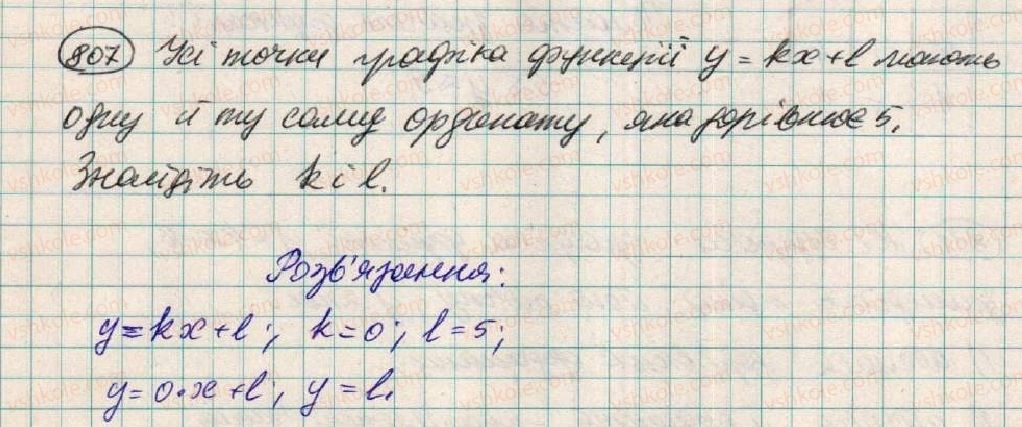 807 Усі точки графіка функції y = kx + l мають
одну й ту саму ординату, яка дорівнює 5.
Знайдіть k і l.
Розв'язання:
y = kx + l; k = 0; l = 5;
y = 0·x + l; y = l.